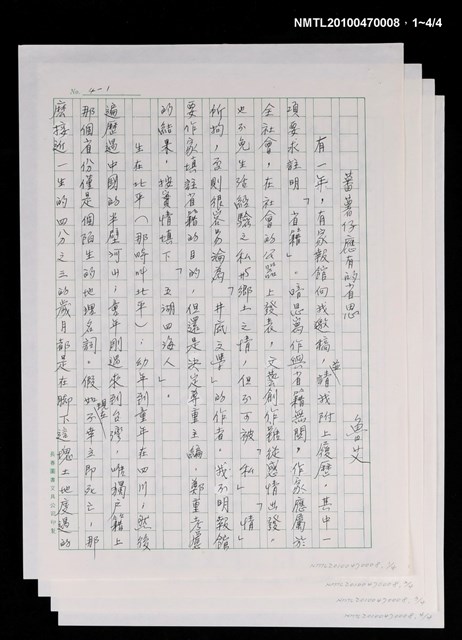 NMTL20100470008・1~4/4
No. 4-1
蕃薯仔應有的省思
魯艾
有一年,有家報館向我邀稿,並請我附上履歷,其中一
項要求註明「省籍」。暗思寫作與省籍無關,作家應屬於
全社會,在社會的公器上發表,文藝創作雖從感情出發,
也不免生活經驗之私與鄉土之情,但不可被「私」「情」
所拘,否則很容易淪為「井底文學」的作者。我不明報館
要作家填註省籍的目的,但還是決定尊重主編,鄭重考慮
的結果,按實情填下「五湖四海人」。
生在北平(那時叫北平);幼年到童年在四川;然後
遍歷過中國的半壁河山;童年剛過來到台灣,唯獨戶籍上
那個省份僅是個陌生的地理名詞。假如現在不幸立即死亡,那
麼接近一生的四分之三的歲月都是在腳下這塊土地度過的
長春圖書文具公司印製
NMTL20100470008.1/4
NMTL20100470008.2/4